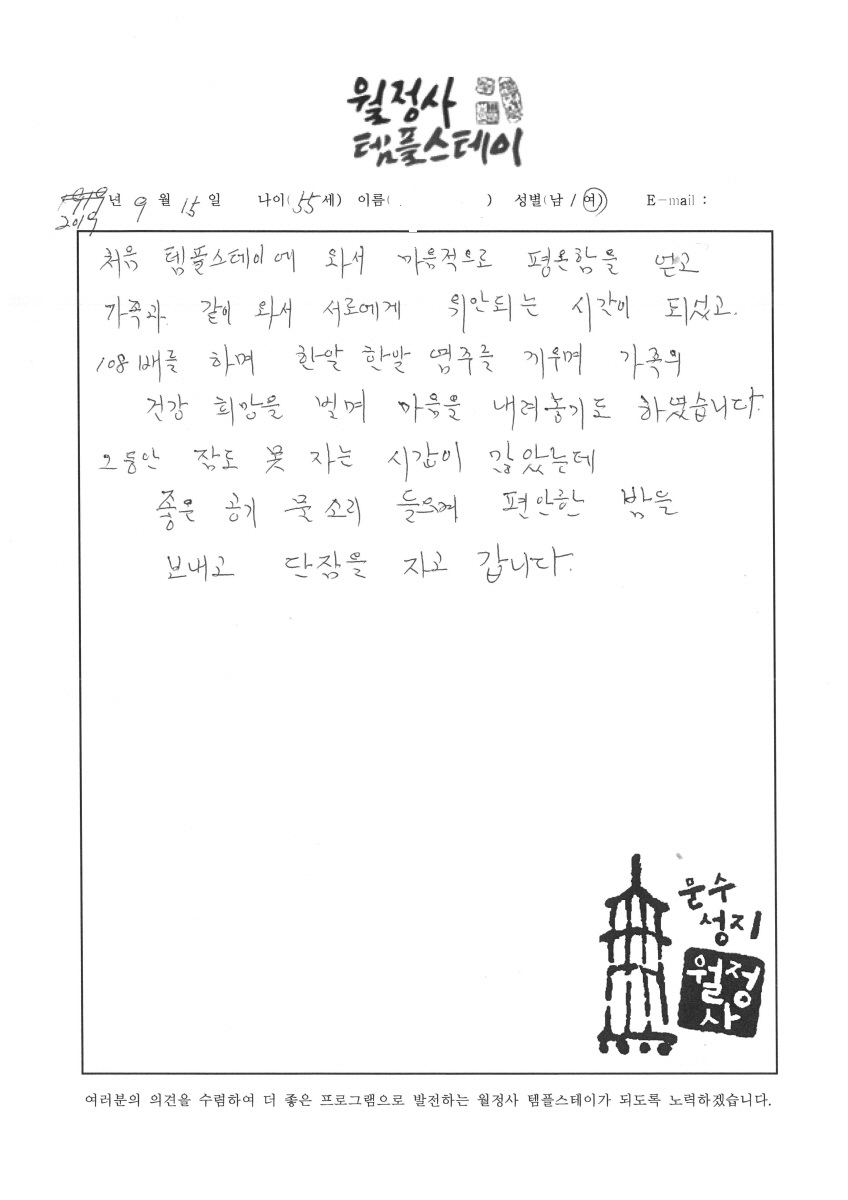 월정사
템플스테이
2019년 9월 15일 나이(55세) 이름( ) 성별(남 / 여) E-mail :
처음 템플스테이에 와서 마음적으로 평온함을 얻고
가족과 같이 와서 서로에게 위안되는 시간이 되었고.
108배를 하며 한알 한알 염주를 끼우며 가족의
건강 희망을 빌며 마음을 내려놓기도 하였습니다.
그동안 잠도 못 자는 시간이 많았는데
좋은 공기 물소리 들으며 편안한 밤을
보내고 단잠을 자고 갑니다.
문수
성지
월정
사
여러분의 의견을 수렴하여 더 좋은 프로그램으로 발전하는 월정사 템플스테이가 되도록 노력하겠습니다.